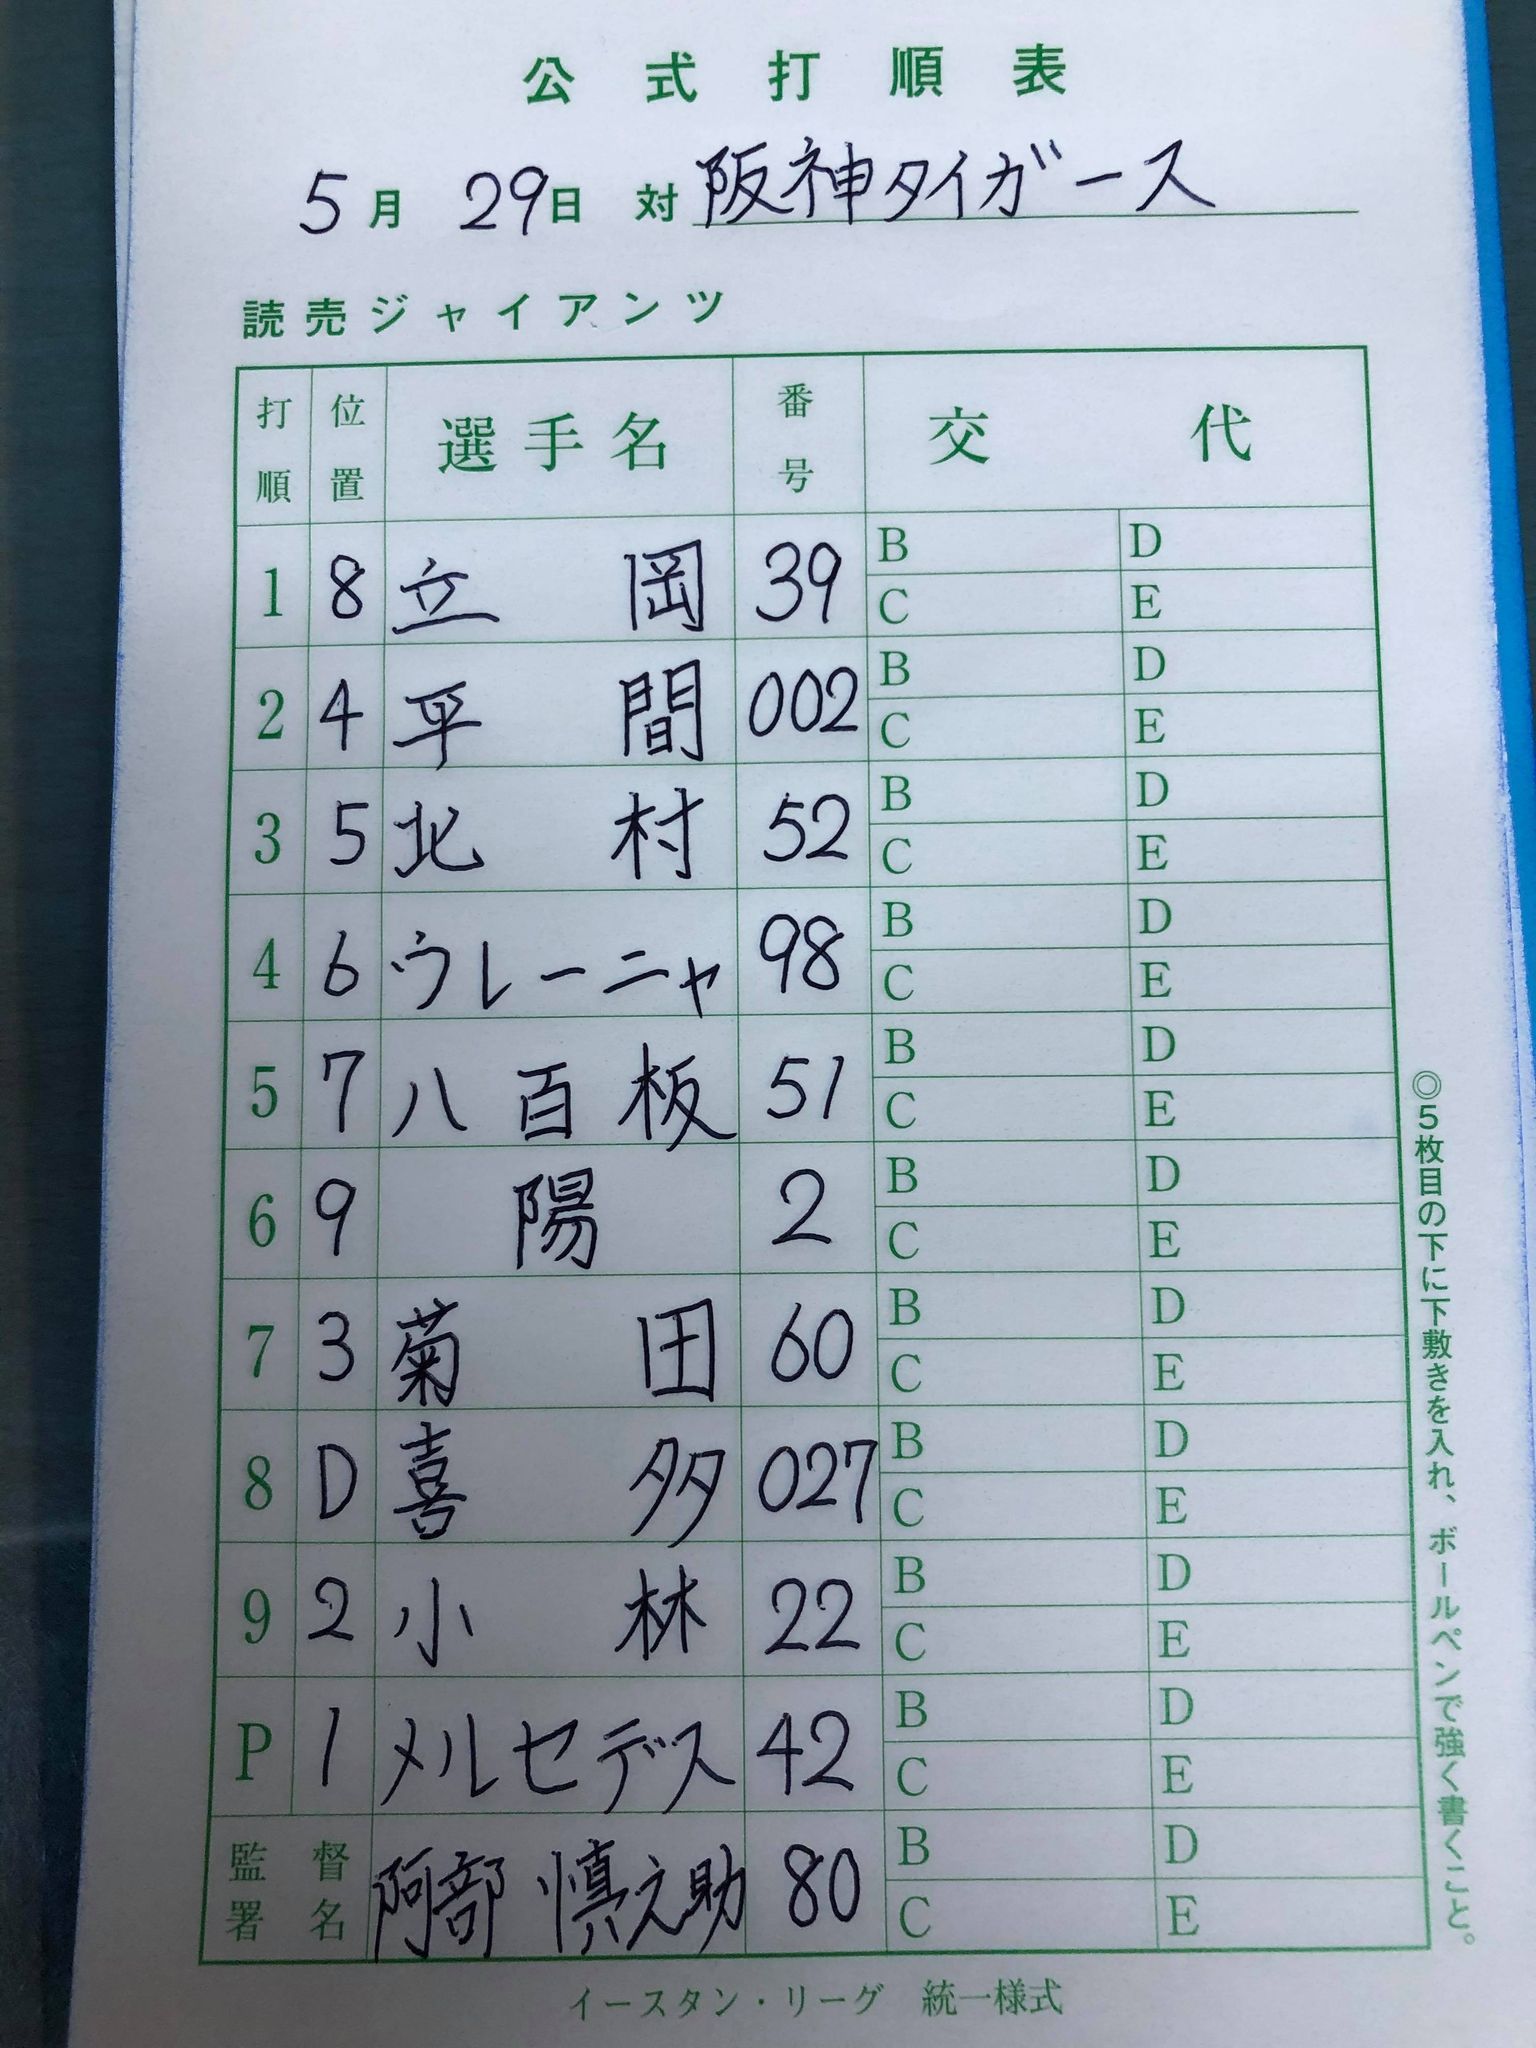 公式打順表
5月 29日 対 阪神タイガース
読売ジャイアンツ
打順 位置 選手名 番号 交代
1 8 立岡 39 B D
C E
2 4 平間 002 B D
C E
3 5 北村 52 B D
C E
4 6 ウレーニャ 98 B D
C E
5 7 八百板 51 B D
C E
6 9 陽 2 B D
C E
7 3 菊田 60 B D
C E
8 D 喜多 027 B D
C E
9 2 小林 22 B D
C E
P 1 メルセデス 42 B D
C E
監督署名 阿部 慎之助 80 B D
C E
◎5枚目の下に下敷きを入れ、ボールペンで強く書くこと。
イースタン・リーグ 統一様式